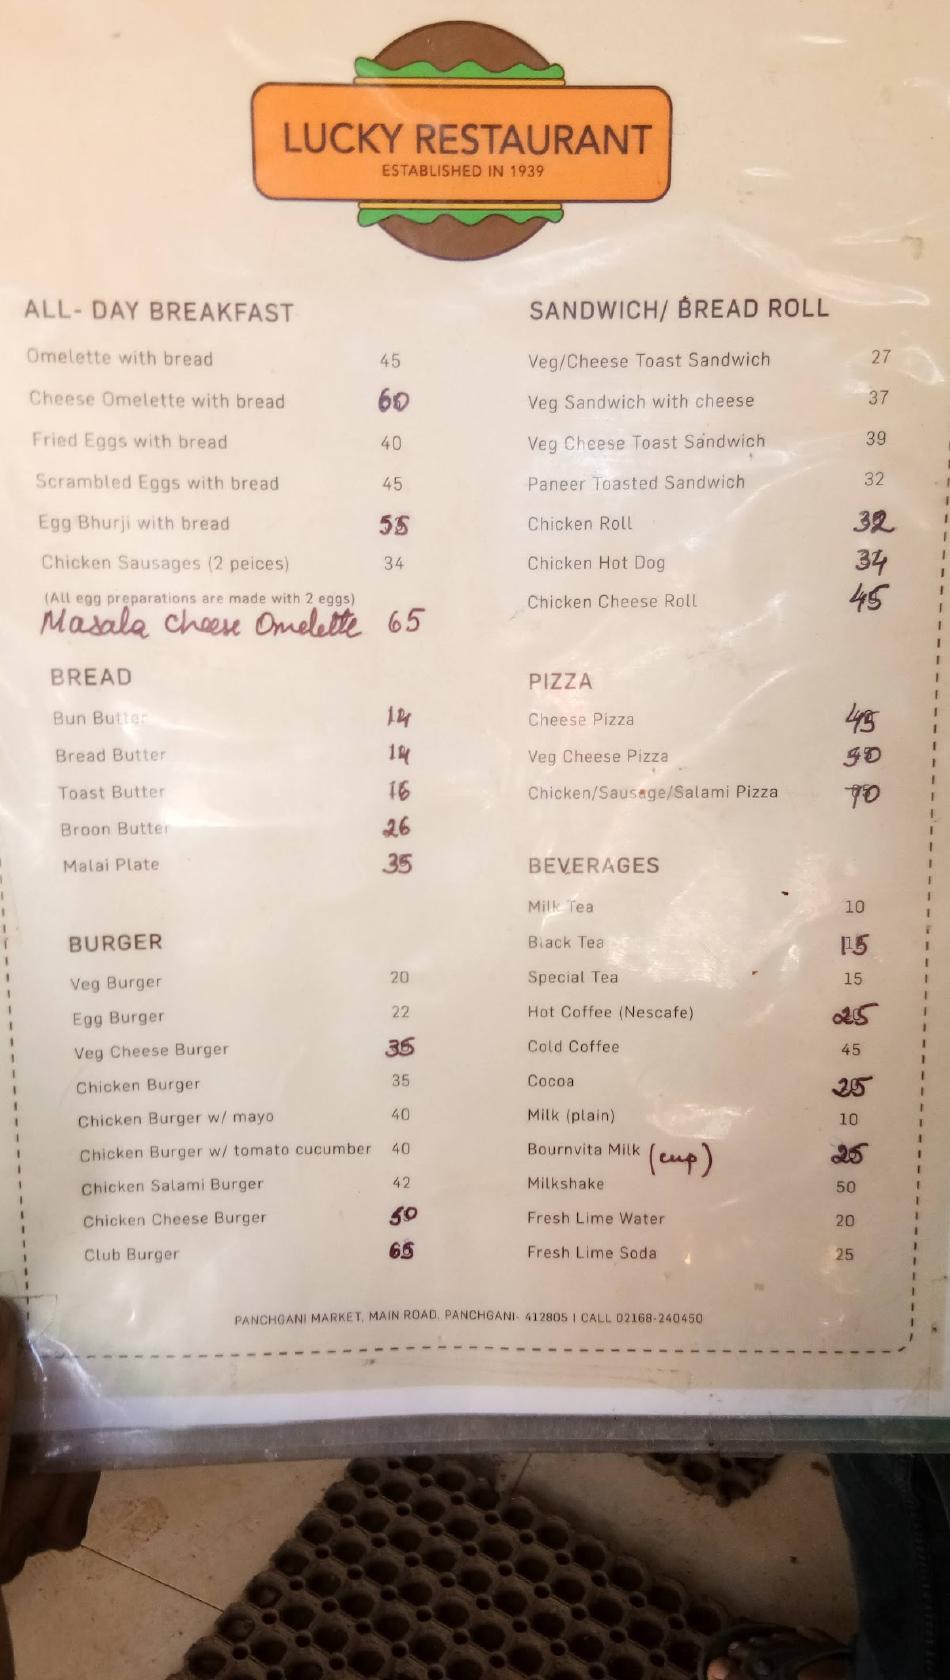 LUCKY RESTAURANT
ESTABLISHED IN 1939
ALL- DAY BREAKFAST
Omelette with bread 45
Cheese Omelette with bread 60
Fried Eggs with bread 40
Scrambled Eggs with bread 45
Egg Bhurji with bread 55
Chicken Sausages (2 peices) 34
(All egg preparations are made with 2 eggs)
Masala Cheese Omelette 65
BREAD
Bun Butter 14
Bread Butter 14
Toast Butter 16
Broon Butter 26
Malai Plate 35
BURGER
Veg Burger 20
Egg Burger 22
Veg Cheese Burger 35
Chicken Burger 35
Chicken Burger w/ mayo 40
Chicken Burger w/ tomato cucumber 40
Chicken Salami Burger 42
Chicken Cheese Burger 50
Club Burger 65
SANDWICH/ BREAD ROLL
Veg/Cheese Toast Sandwich 27
Veg Sandwich with cheese 37
Veg Cheese Toast Sandwich 39
Paneer Toasted Sandwich 32
Chicken Roll 32
Chicken Hot Dog 34
Chicken Cheese Roll 45
PIZZA
Cheese Pizza 45
Veg Cheese Pizza
Chicken/Sausage/Salami Pizza 70
BEVERAGES
Milk Tea 10
Black Tea 15
Special Tea 15
Hot Coffee (Nescafe) 25
Cold Coffee 45
Cocoa 25
Milk (plain) 10
Bournvita Milk (cup) 25
Milkshake 50
Fresh Lime Water 20
Fresh Lime Soda 25
PANCHGANI MARKET, MAIN ROAD, PANCHGANI- 412805 | CALL 02168-240450